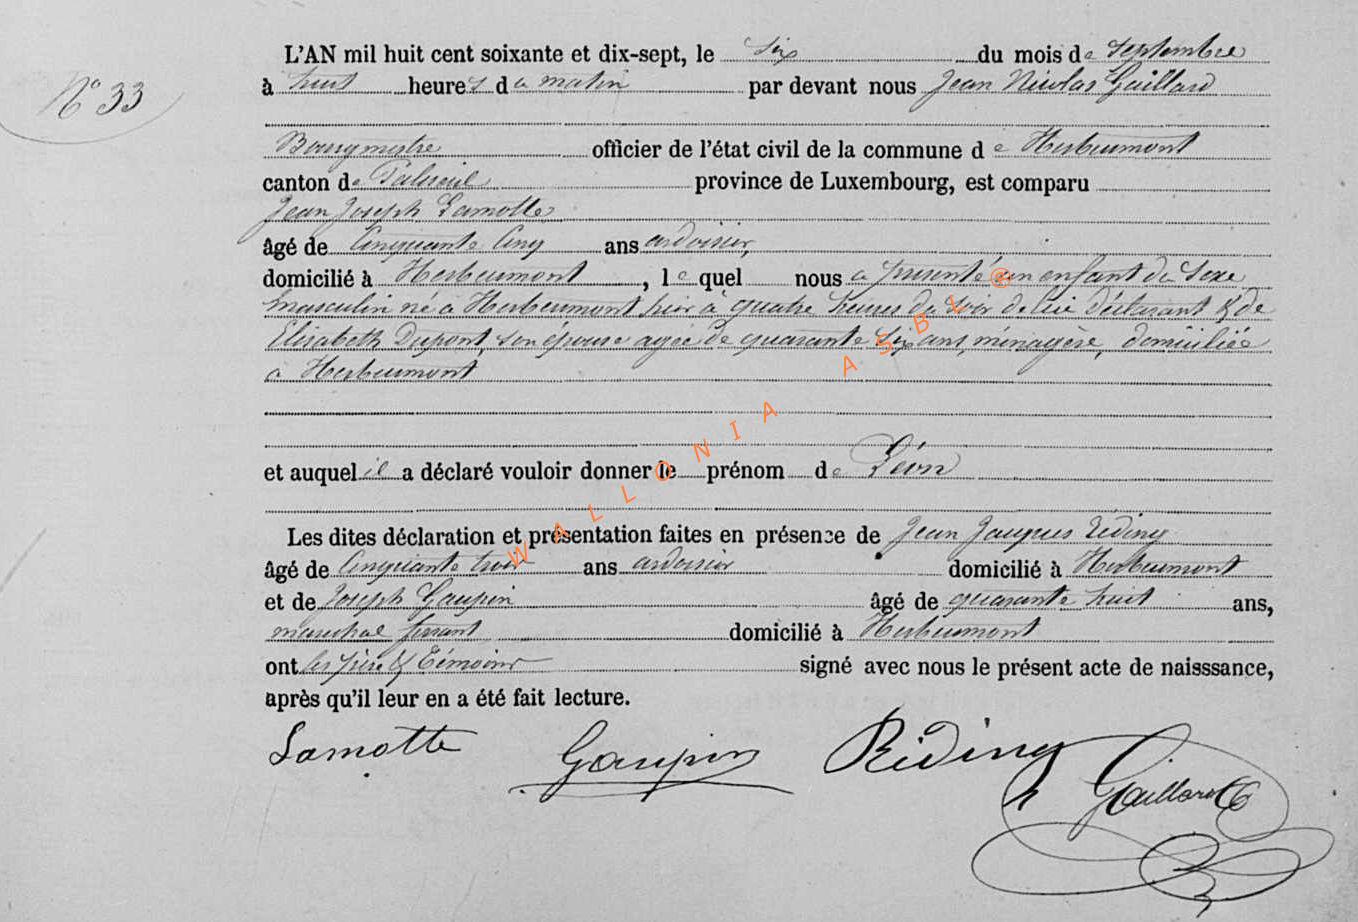 N° 33
L'AN mil huit cent soixante et dix-sept, le six du mois de septembre
à huit heures du matin par devant nous Jean Nicolas Gaillard
Bourgmestre officier de l'état civil de la commune de Herbeumont
canton de Paliseul province de Luxembourg, est comparu
Jean Joseph Lamotte
âgé de Cinquante Cinq ans ardoisier,
domicilié à Herbeumont, lequel nous a présenté un enfant du Sexe
masculin né à Herbeumont hier à quatre heures du soir de lui déclarant & de
Elisabeth Dupont, son épouse agée de quarante six ans, ménagère, domiciliée
à Herbeumont
et auquel il a déclaré vouloir donner le prénom de Léon
Les dites déclaration et présentation faites en présence de Jean Jacques Riding
âgé de Cinquante trois ans ardoisier domicilié à Herbeumont
et de Joseph Gaupin âgé de quarante huit ans,
maréchal ferrant domicilié à Herbeumont
ont les père & témoins signé avec nous le présent acte de naisssance,
après qu'il leur en a été fait lecture.
Lamotte Gaupin Riding Gaillard
WALLONIA ASBL ®